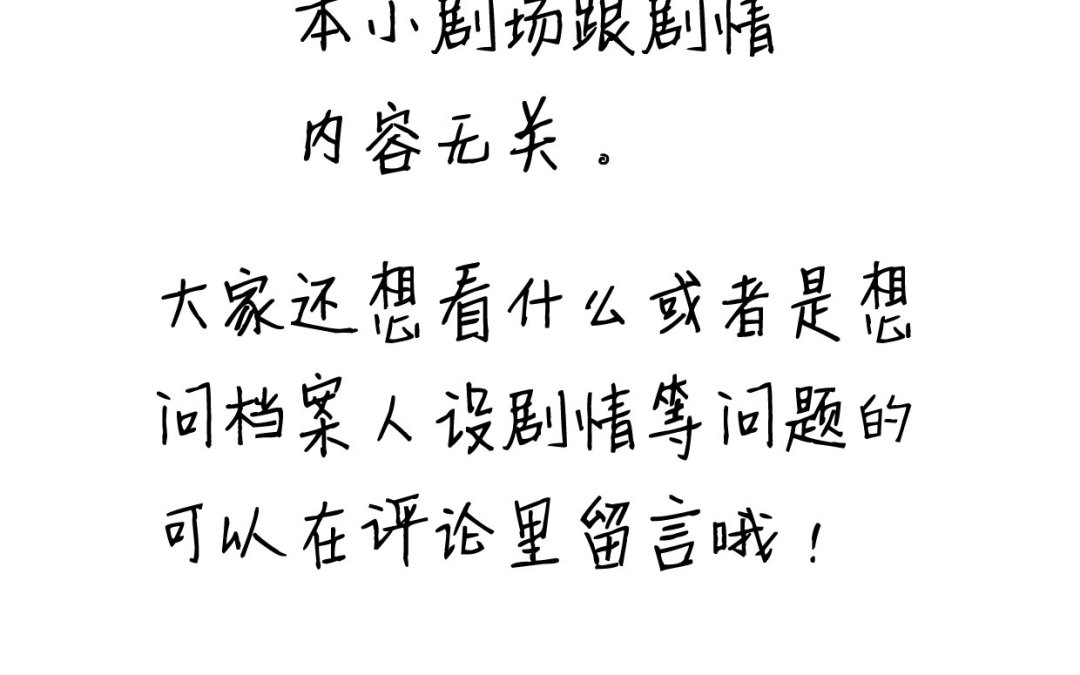 本小剧场跟剧情
内容无关。
大家还想看什么或者是想
问档案人设剧情等问题的
可以在评论里留言哦！